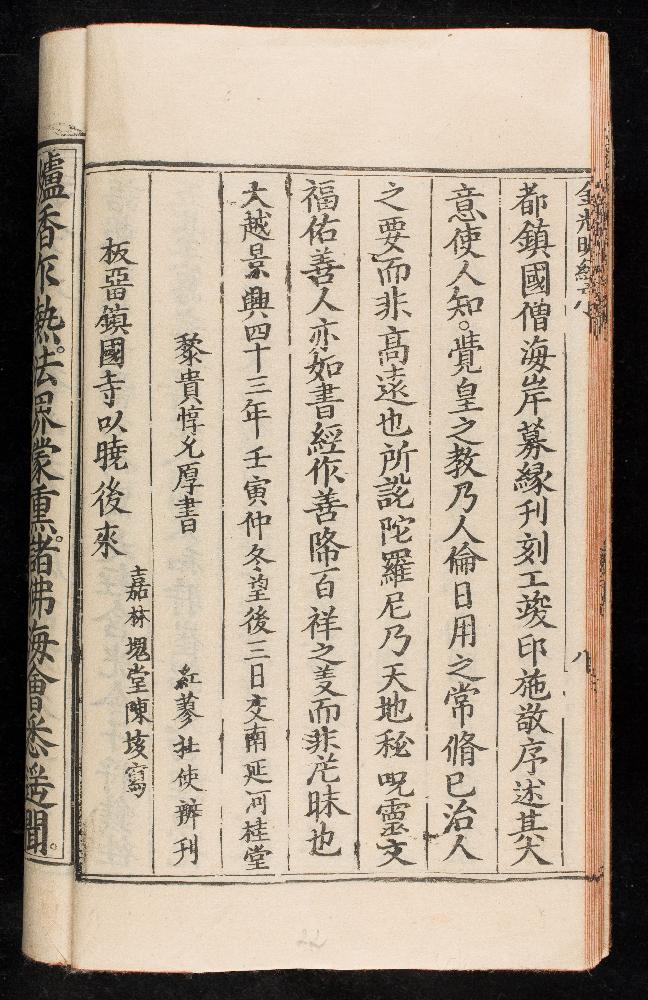 金光明經
八
都鎮國僧海岸募緣刊刻工竣印施敬序述其大
意使人知。覺皇之教乃人倫日用之常脩已治人
之要而非高遠也所說陀羅尼乃天地秘呪靈文
福佑善人亦如書經作善降百祥之義而非茫昧也
大越景興四十三年壬寅仲冬望後三日交南延河桂堂
黎貴惇允厚書
紅蓼社使辦刊
板畱鎮國寺以曉後來
嘉林塊堂陳垓寫
爐香乍爇。法界蒙熏。諸佛海會悉遙聞。